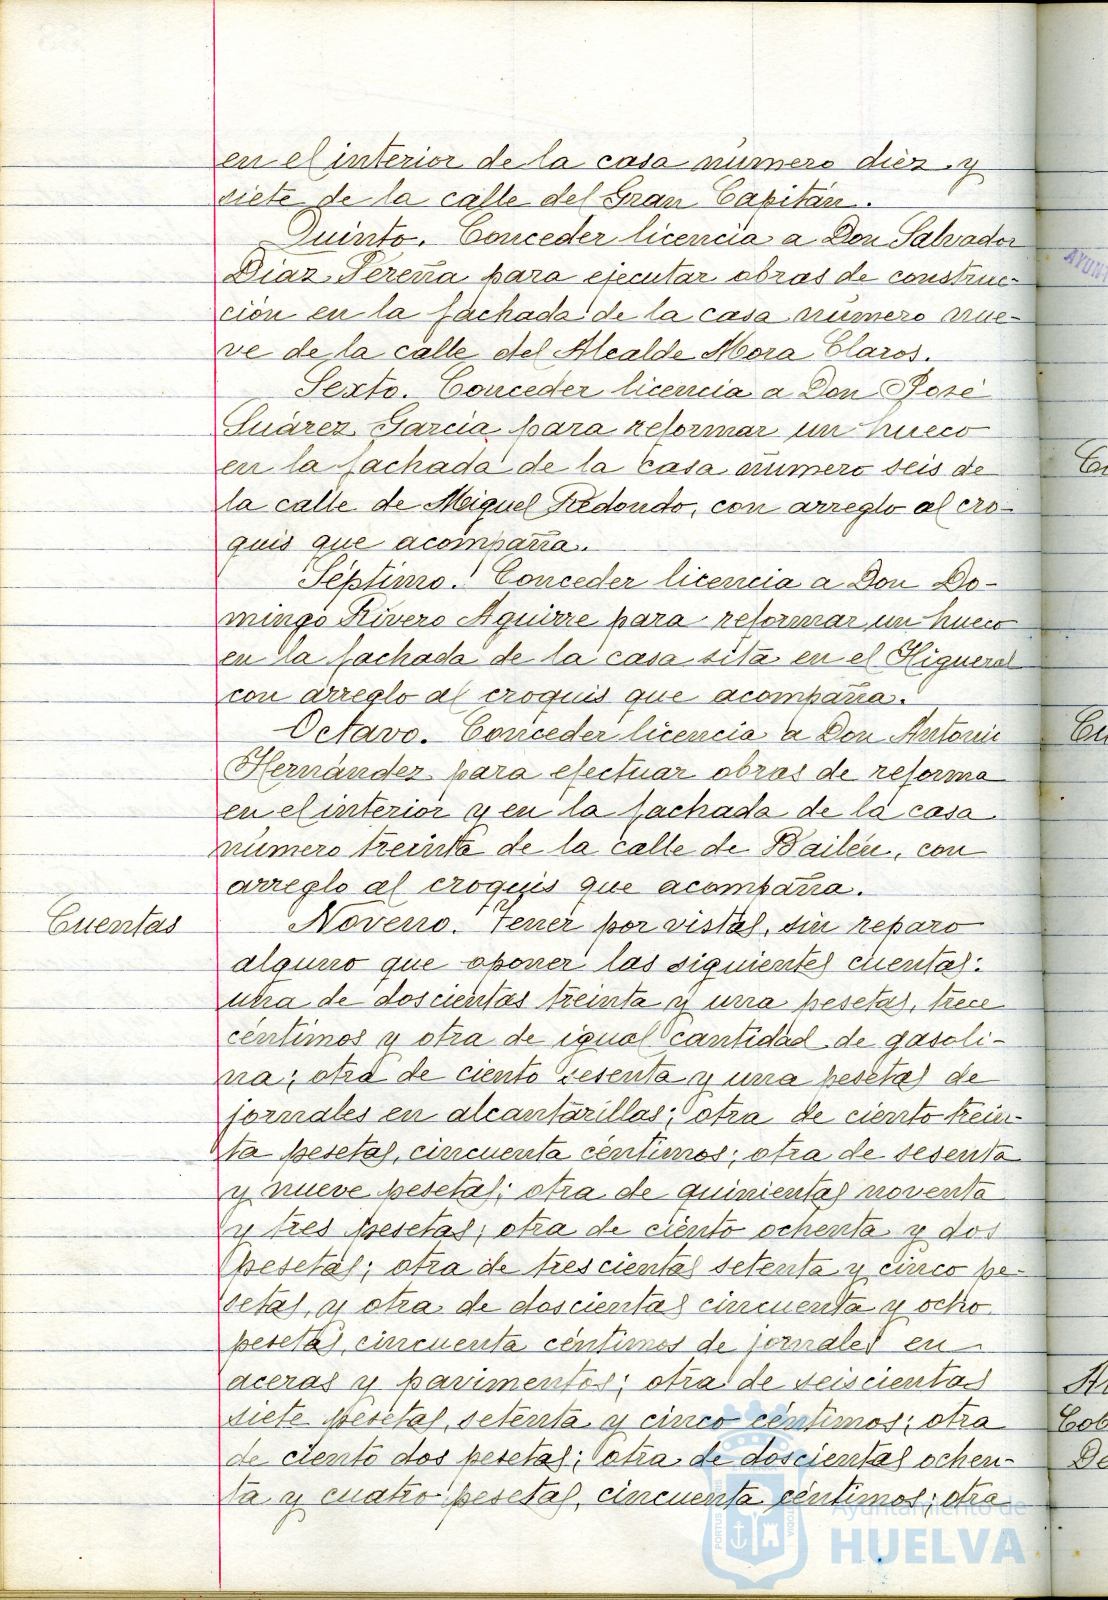 en el interior de la casa número diez y
siete de la calle del Gran Capitán.
Quinto. Conceder licencia a Don Salvador
Díaz Pereña para ejecutar obras de construc-
ción en la fachada de la casa número nue-
ve de la calle del Alcalde Mora Claros.
Sexto. Conceder licencia a Don José
Suárez García para reformar un hueco
en la fachada de la casa número seis de
la calle de Miguel Redondo, con arreglo al cro-
quis que acompaña.
Séptimo. Conceder licencia a Don Do-
mingo Rivero Aguirre para reformar un hueco
en la fachada de la casa sita en el Higueral
con arreglo al croquis que acompaña.
Octavo. Conceder licencia a Don Antonio
Hernández para efectuar obras de reforma
en el interior y en la fachada de la casa
número treinta de la calle de Bailén, con
arreglo al croquis que acompaña.
Cuentas
Noveno. Tener por vistas, sin reparo
alguno que oponer las siguientes cuentas:
una de doscientas treinta y una pesetas, trece
céntimos y otra de igual cantidad de gasoli-
na; otra de ciento sesenta y una pesetas de
jornales en alcantarillas; otra de ciento trein-
ta pesetas, cincuenta céntimos; otra de sesenta
y nueve pesetas; otra de quinientas noventa
y tres pesetas; otra de ciento ochenta y dos
pesetas; otra de trescientas setenta y cinco pe-
setas, y otra de doscientas cincuenta y ocho
pesetas, cincuenta céntimos de jornales en
aceras y pavimentos; otra de seiscientas
siete pesetas, setenta y cinco céntimos; otra
de ciento dos pesetas; otra de doscientas ochen-
ta y cuatro pesetas, cincuenta céntimos; otra
Ayuntamiento de
HUELVA
AYUN
Cu
Cob
De